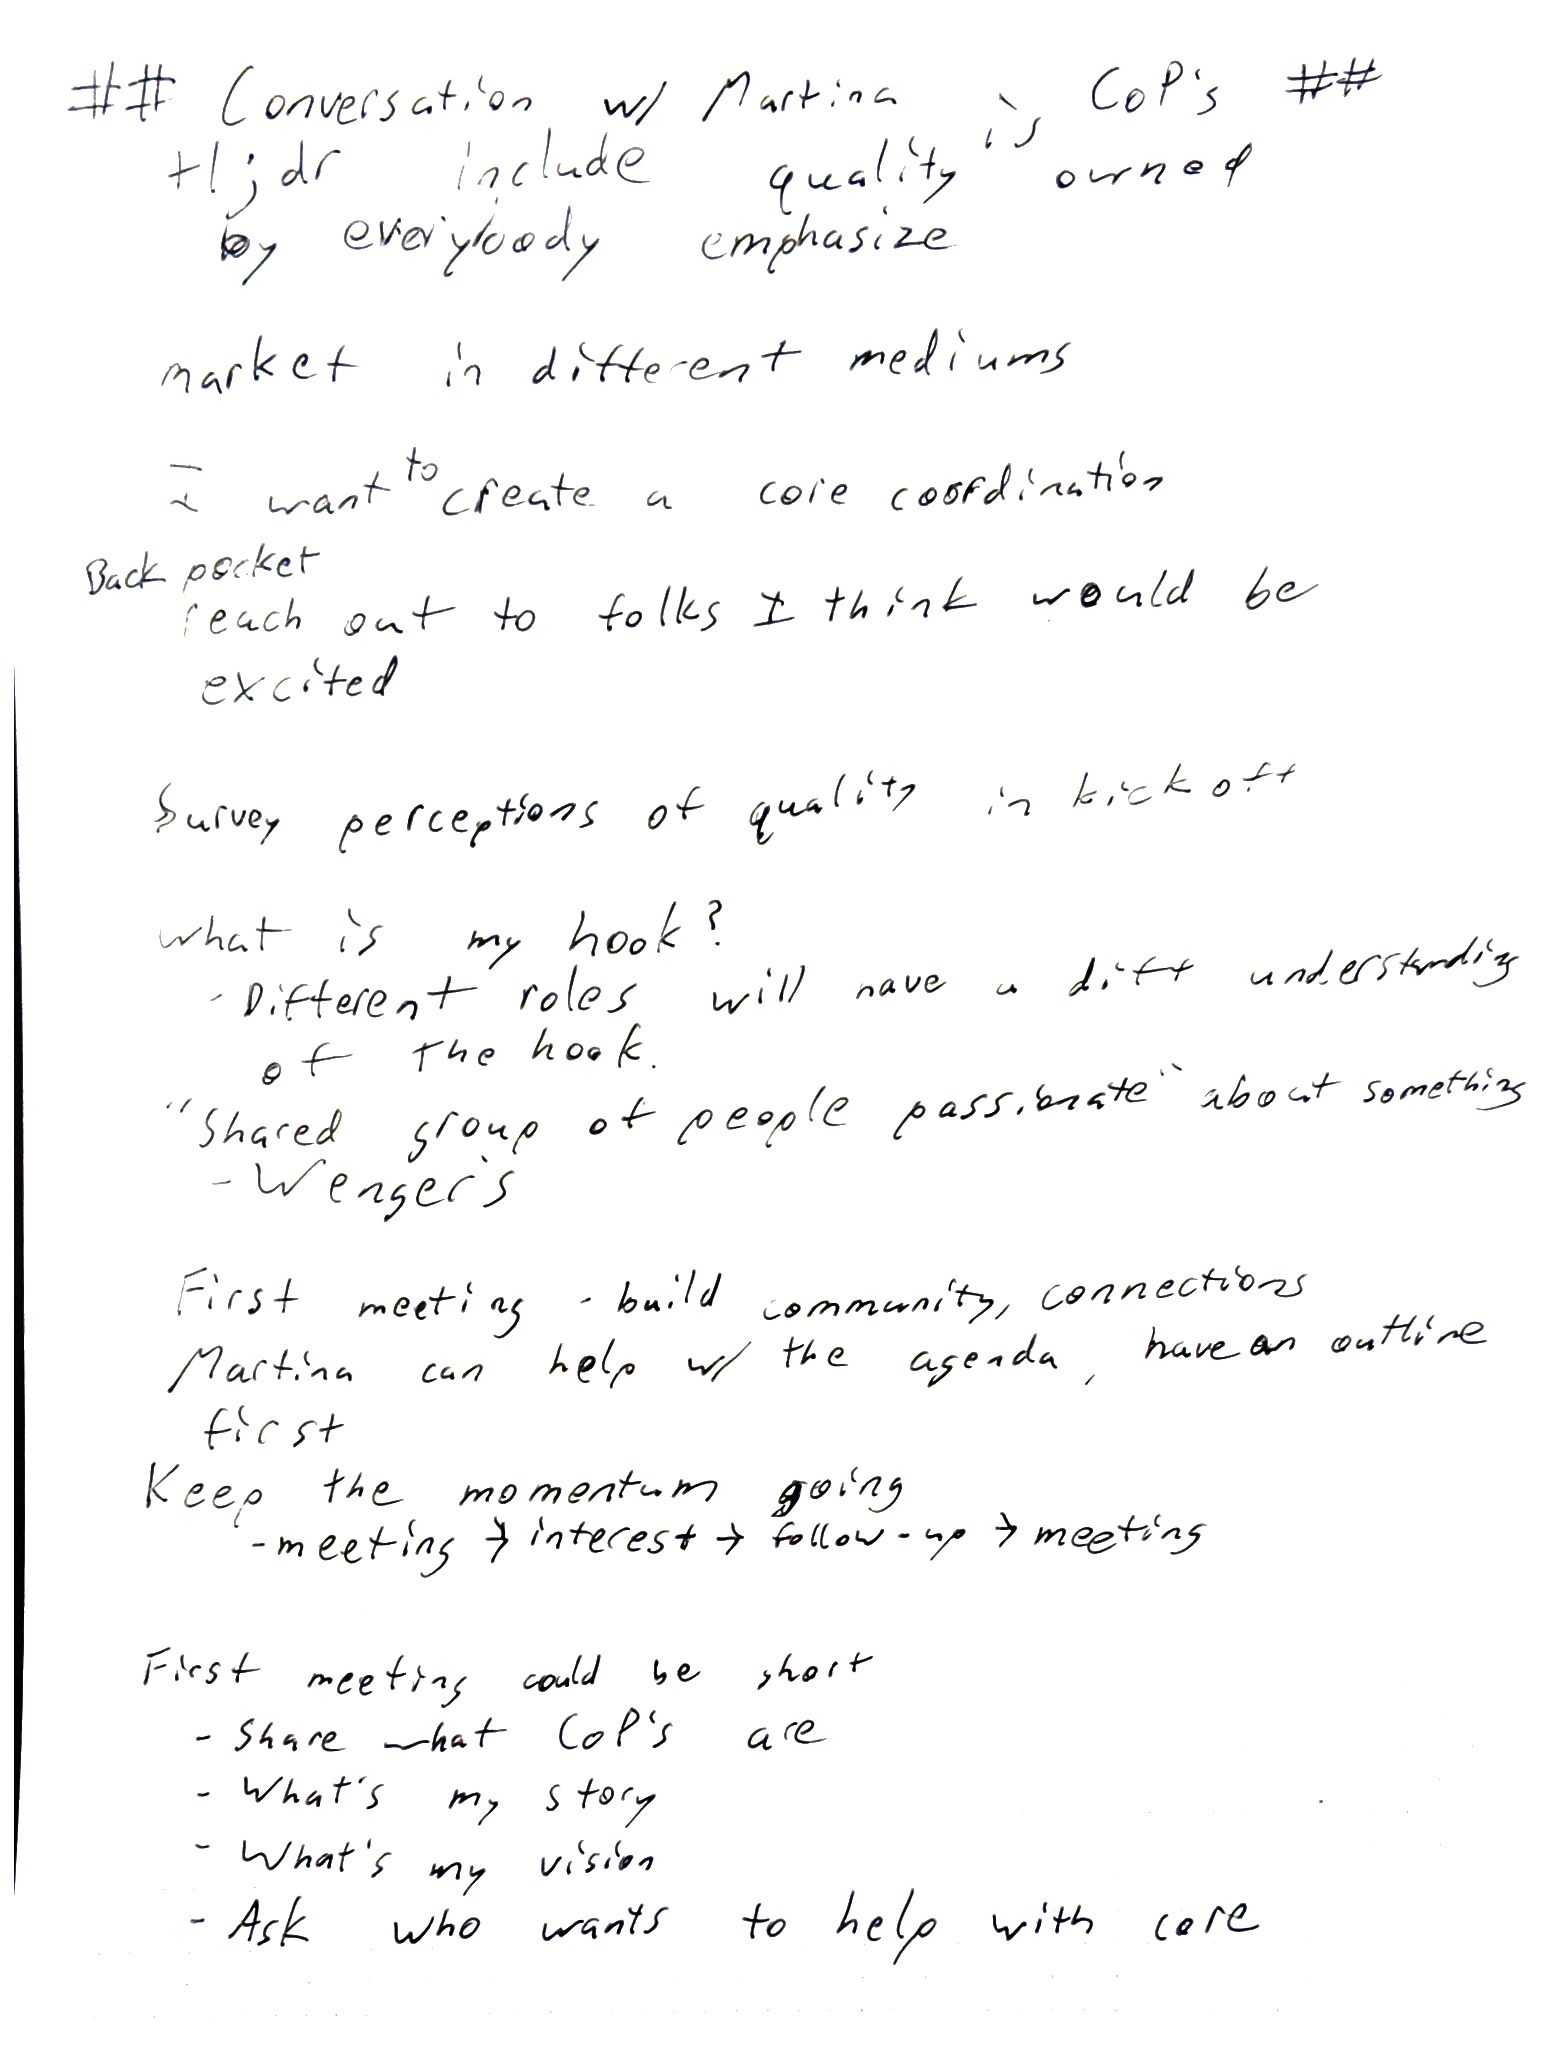 ## Conversation w/ Martina, CoP's ##
tl;dr include quality is owned
by everybody emphasize
market in different mediums
I want to create a core coordination
Back pocket
reach out to folks I think would be
excited
Survey perceptions of quality in kick off
what is my hook?
- Different roles will have a diff understanding
of the hook.
"Shared group of people passionate" about something
- Wenger's
First meeting - build community, connections
Martina can help w/ the agenda, have an outline
first
Keep the momentum going
- meeting → interest → follow-up → meeting
First meeting could be short
- Share what CoP's are
- What's my story
- What's my vision
- Ask who wants to help with core